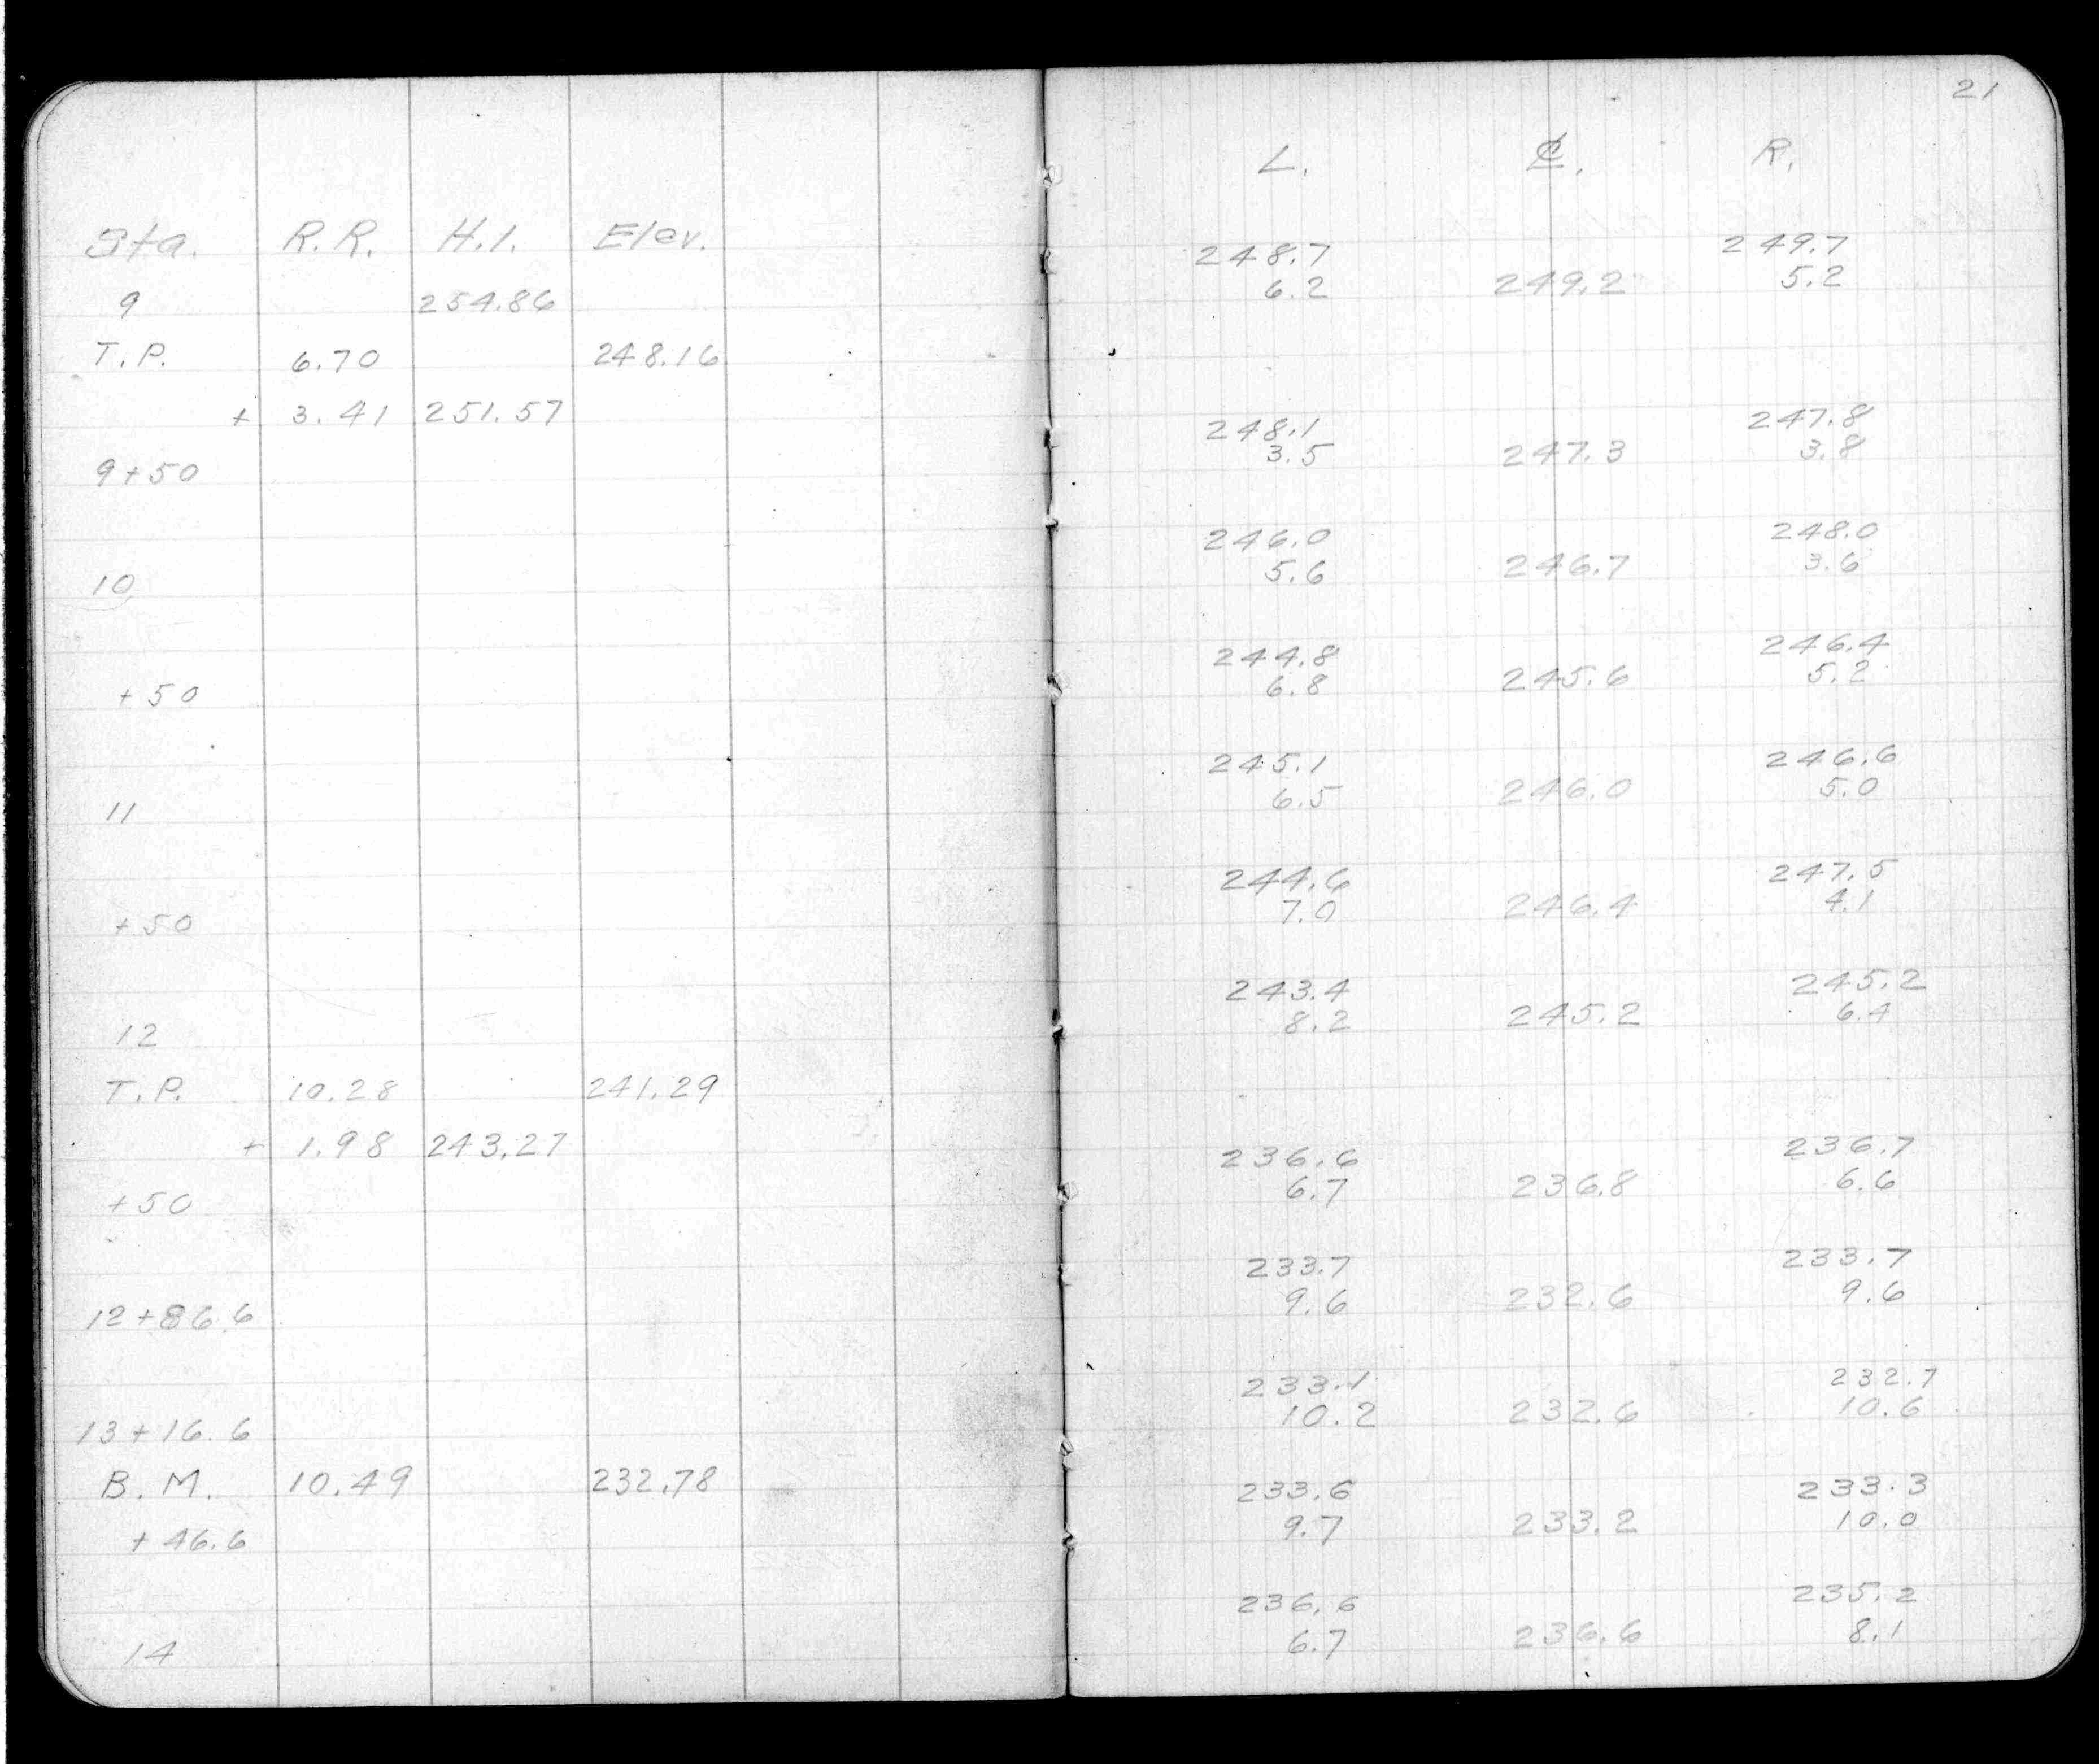 Sta. R.R. H.I. Elev.
9 254.86
T.P. 6.70 248.16
+ 3.41 251.57
9+50
10
+50
11
+50
12
T.P. 10.28 241.29
+ 1.98 243.27
+50
12+86.6
13+16.6
B.M. 10.49 232.78
+46.6
14
21
L. ℄. R.
248.7 249.7
6.2 249.2 5.2
248.1 247.8
3.5 247.3 3.8
246.0 248.0
5.6 246.7 3.6
244.8 246.4
6.8 245.6 5.2
245.1 246.6
6.5 246.0 5.0
244.6 247.5
7.0 246.4 4.1
243.4 245.2
8.2 245.2 6.4
236.6 236.7
6.7 236.8 6.6
233.7 233.7
9.6 232.6 9.6
233.1 232.7
10.2 232.6 10.6
233.6 233.3
9.7 233.2 10.0
236.6 235.2
6.7 236.6 8.1